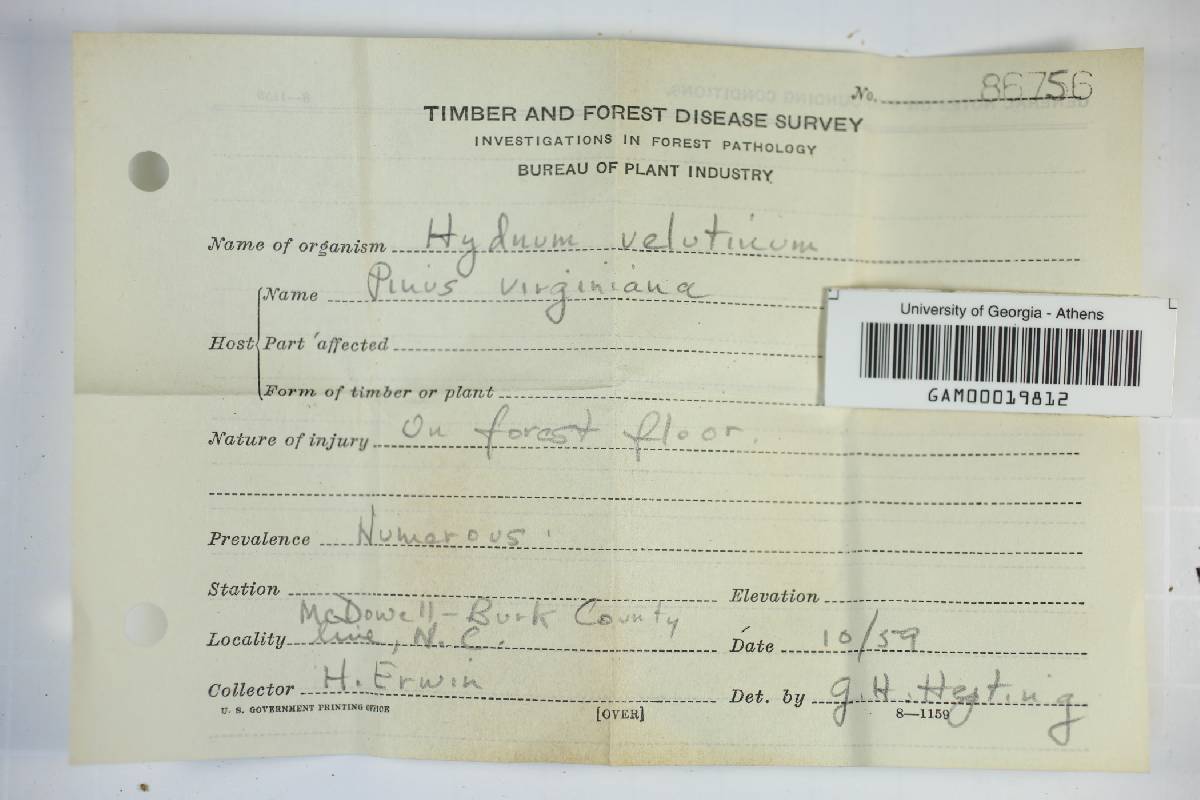 No. 86756
TIMBER AND FOREST DISEASE SURVEY
INVESTIGATIONS IN FOREST PATHOLOGY
BUREAU OF PLANT INDUSTRY
Name of organism Hydnum velutinum
Name Pinus virginiana
Host Part affected
Form of timber or plant
University of Georgia - Athens
GAM00019812
Nature of injury On forest floor.
Prevalence Numerous.
Station
Elevation
McDowell-Burk County
Locality line, N.C.
Date 10/59
Collector H. Erwin
Det. by G. H. Hepting
U. S. GOVERNMENT PRINTING OFFICE
[OVER]
8—1159